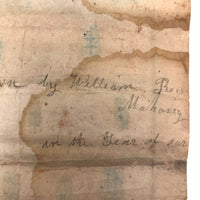 by William
Mahony
in the Year of our